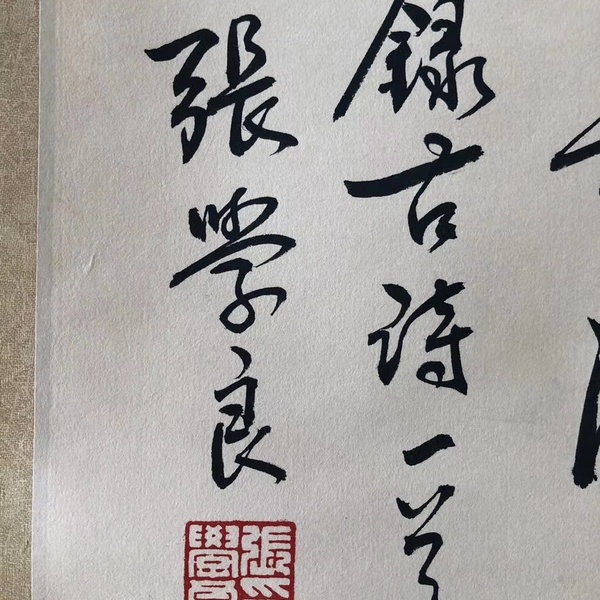 錄古詩一首
張學良